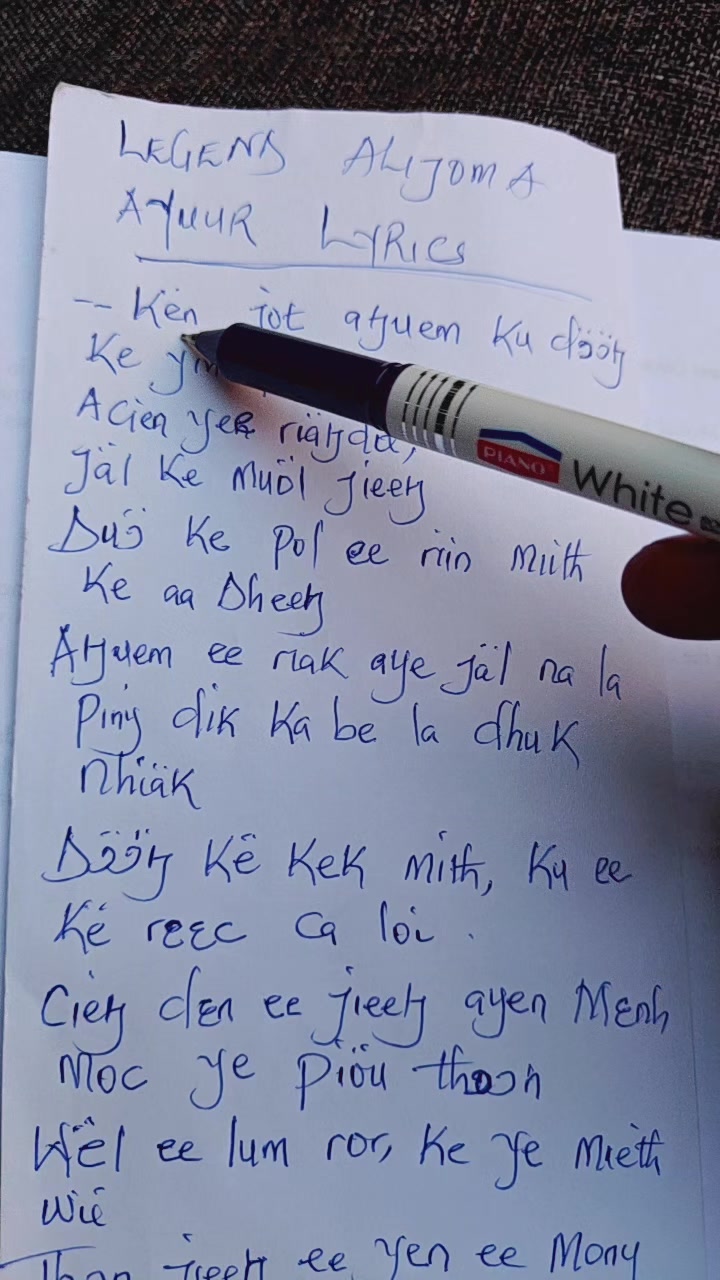 LEGEND ALIJOMA
AYUUR LYRICS
-- Kën jot aŋuem Ku dɔ̈ɔ̈ŋ
Ke
Acien yee riäŋdu,
Jäl Ke muɔ̈l jieeŋ
Duɔ̈ Ke pol ee riin miith
Ke aa Dheeŋ
Aŋuem ee riak aye jäl na la
Piny dik Ka be la dhuk
Nhiäk
Dɔ̈ɔ̈ŋ Kë Kek mith, Ku ee
Kë rɛɛc ca loi.
Cieŋ dɛn ee jieeŋ ayen Mɛnh
Moc ye piɔ̈u thɔɔn
Wɛ̈l ee lum ror, Ke ye mieth
Wië
Thon jieeŋ ee yen ee Mony
PIANO
White